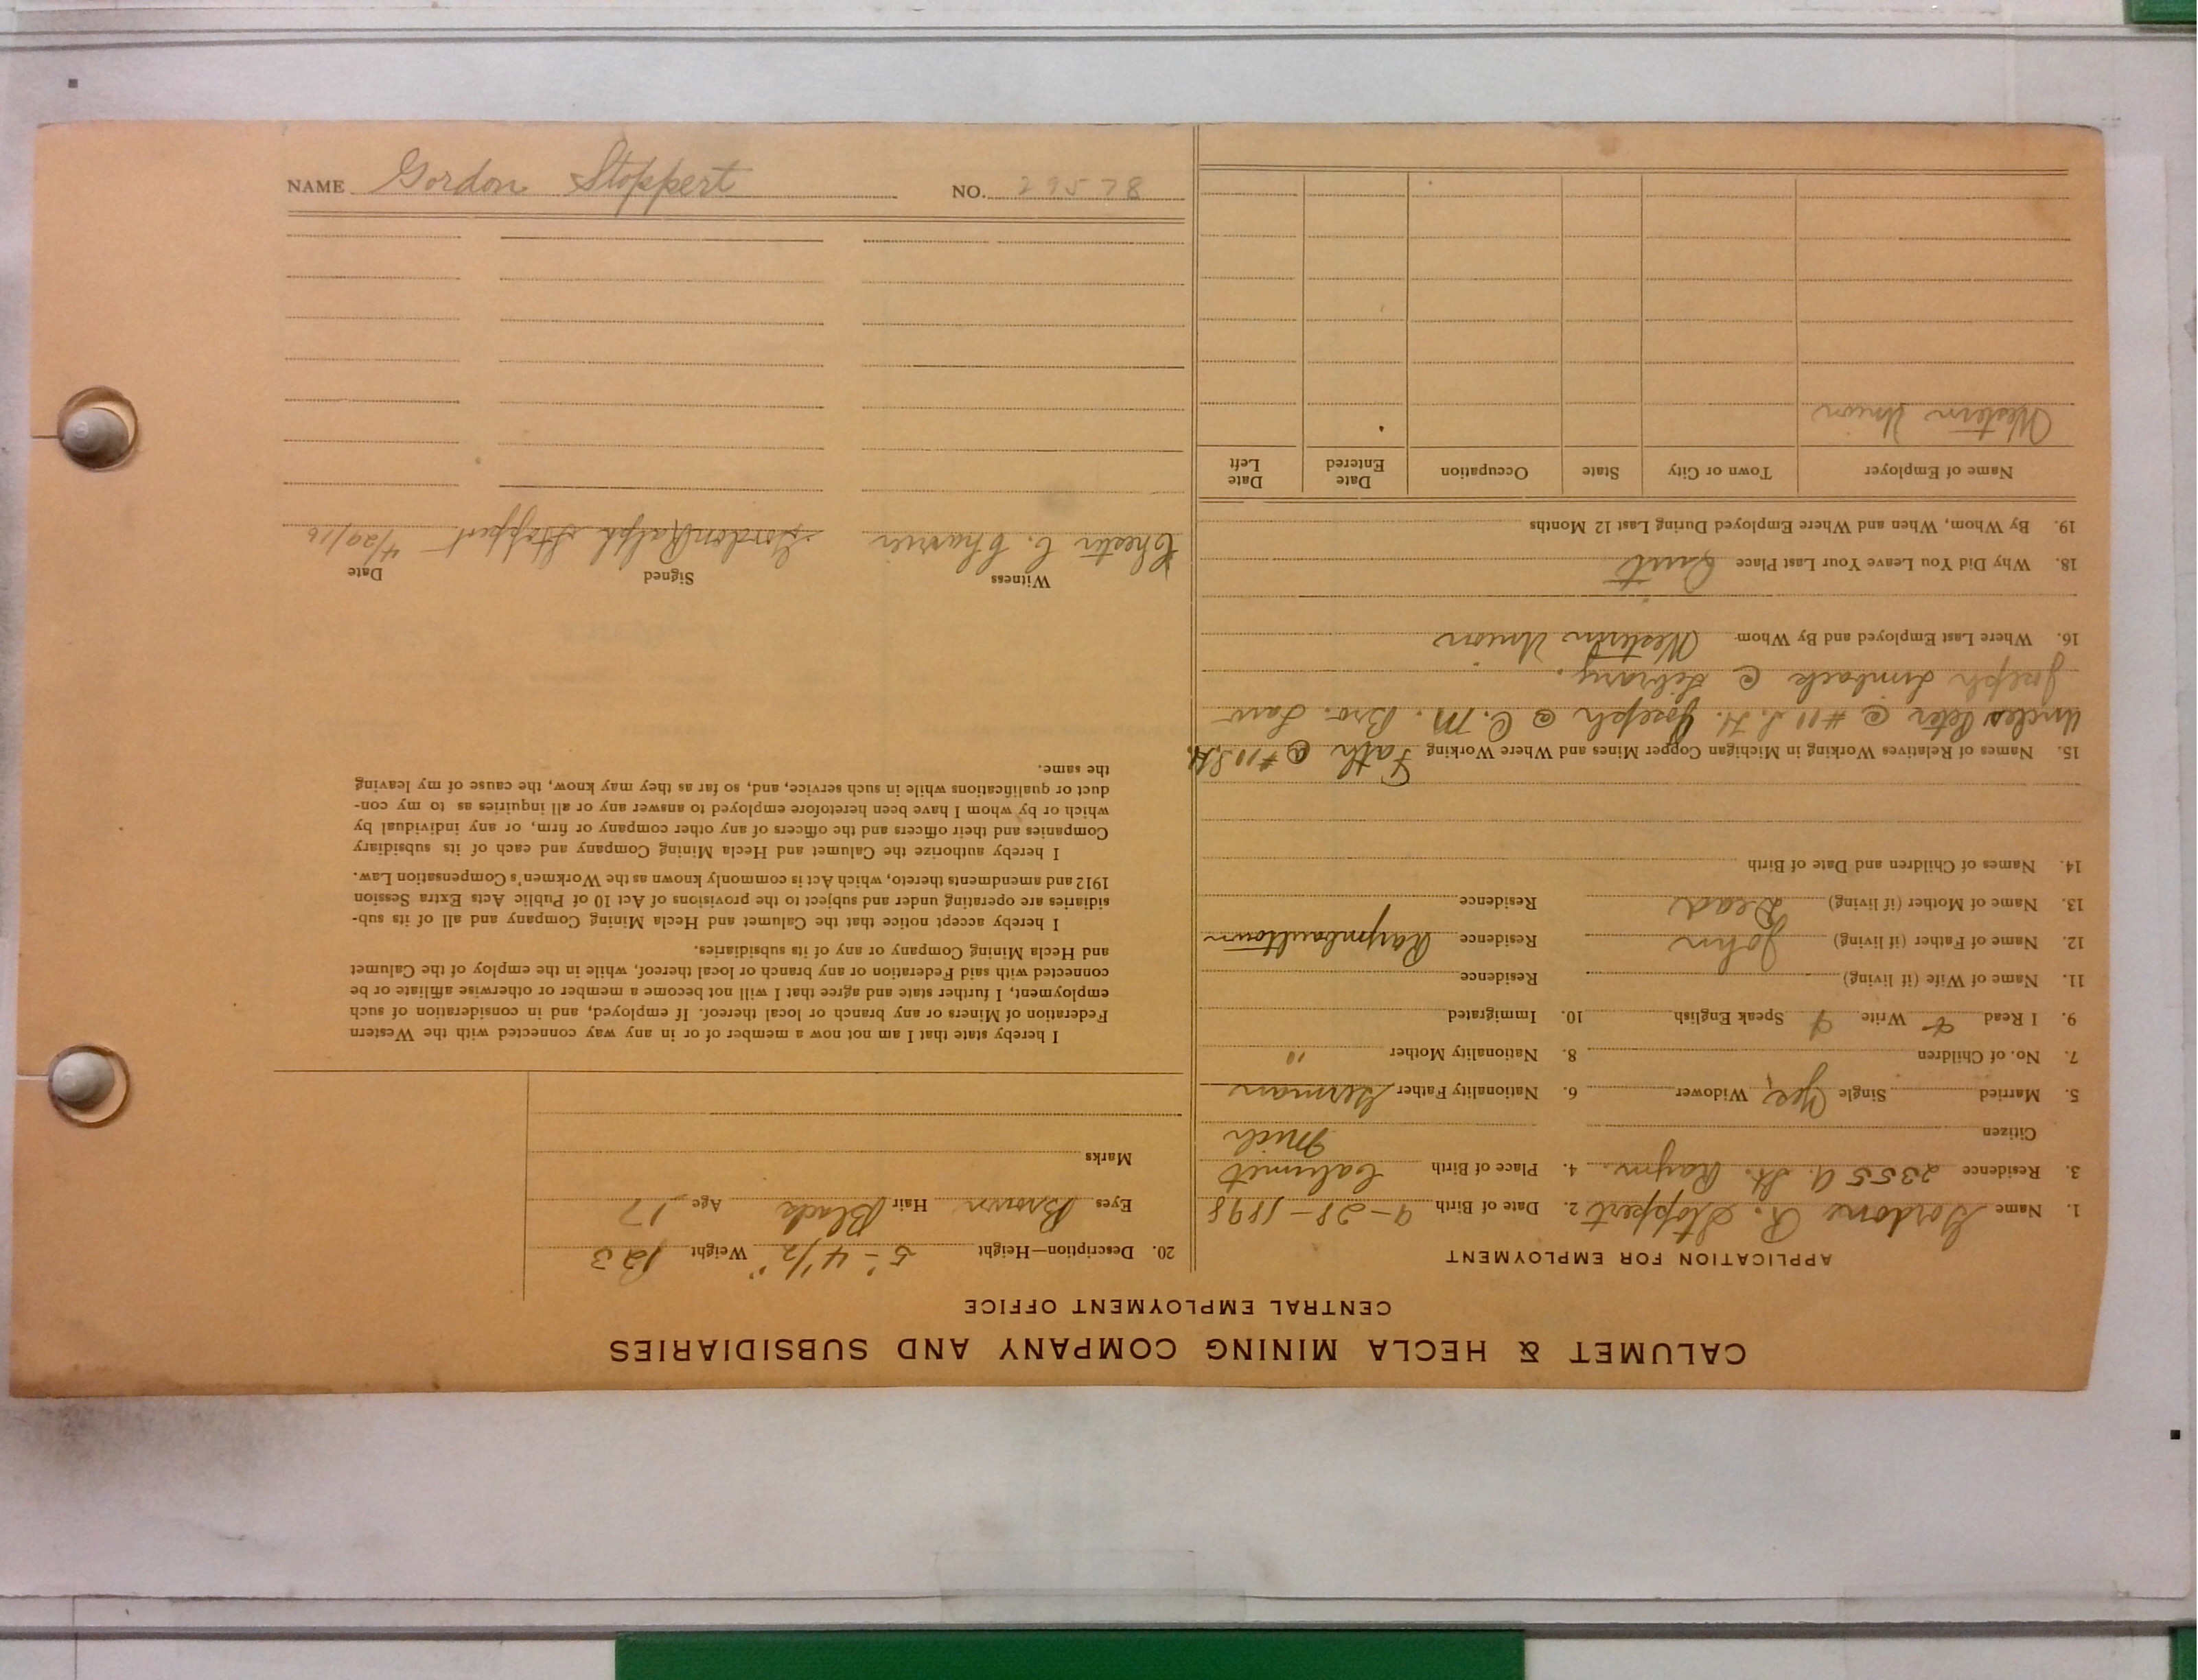 NAME Gordon Stoppert NO. 29578
CALUMET & HECLA MINING COMPANY AND SUBSIDIARIES
CENTRAL EMPLOYMENT OFFICE
APPLICATION FOR EMPLOYMENT
1. Name Gordone R. Stoppert 2. Date of Birth 9-28-1898
3. Residence 2355 A St. Raym. 4. Place of Birth Calumet
Mich
Citizen
5. Married Single Yes Widower 6. Nationality Father German
7. No. of Children 8. Nationality Mother "
9. I Read Write Speak English 10. Immigrated
11. Name of Wife (if living) Residence
12. Name of Father (if living) John Residence Raymbaultown
13. Name of Mother (if living) Dead Residence
14. Names of Children and Date of Birth
15. Names of Relatives Working in Michigan Copper Mines and Where Working Fath @ #11 S.H.
Uncles Peter @ #11 S.H. Joseph @ C.M. Bro. Law
Joseph Limback @ Library.
16. Where Last Employed and By Whom Western Union
18. Why Did You Leave Your Last Place Quit
19. By Whom, When and Where Employed During Last 12 Months
Name of Employer Town or City State Occupation Date Entered Date Left
Western Union
20. Description—Height 5'-4 1/2" Weight 123
Eyes Brown Hair Black Age 17
Marks
I hereby state that I am not now a member of or in any way connected with the Western
Federation of Miners or any branch or local thereof. If employed, and in consideration of such
employment, I further state and agree that I will not become a member or otherwise affiliate or be
connected with said Federation or any branch or local thereof, while in the employ of the Calumet
and Hecla Mining Company or any of its subsidiaries.
I hereby accept notice that the Calumet and Hecla Mining Company and all of its sub-
sidiaries are operating under and subject to the provisions of Act 10 of Public Acts Extra Session
1912 and amendments thereto, which Act is commonly known as the Workmen's Compensation Law.
I hereby authorize the Calumet and Hecla Mining Company and each of its subsidiary
Companies and their officers and the officers of any other company or firm, or any individual by
which or by whom I have been heretofore employed to answer any or all inquiries as to my con-
duct or qualifications while in such service, and, so far as they may know, the cause of my leaving
the same.
Witness Signed Date
Chester C. Gordon Ralph Stoppert 4/29/16